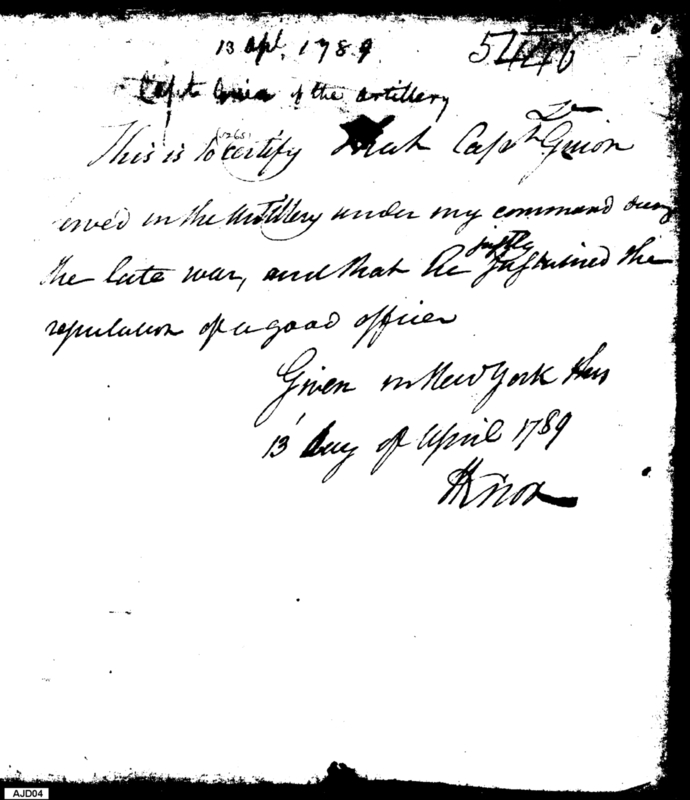 13 Apl. 1789
5446
Capt Guion of the artillery
This is to certify that Capt Guion
served in the artillery under my command during
the late war, and that he justly sustained the
reputation of a good officer
Given in New York this
13 day of April 1789
HKnox
AJD04